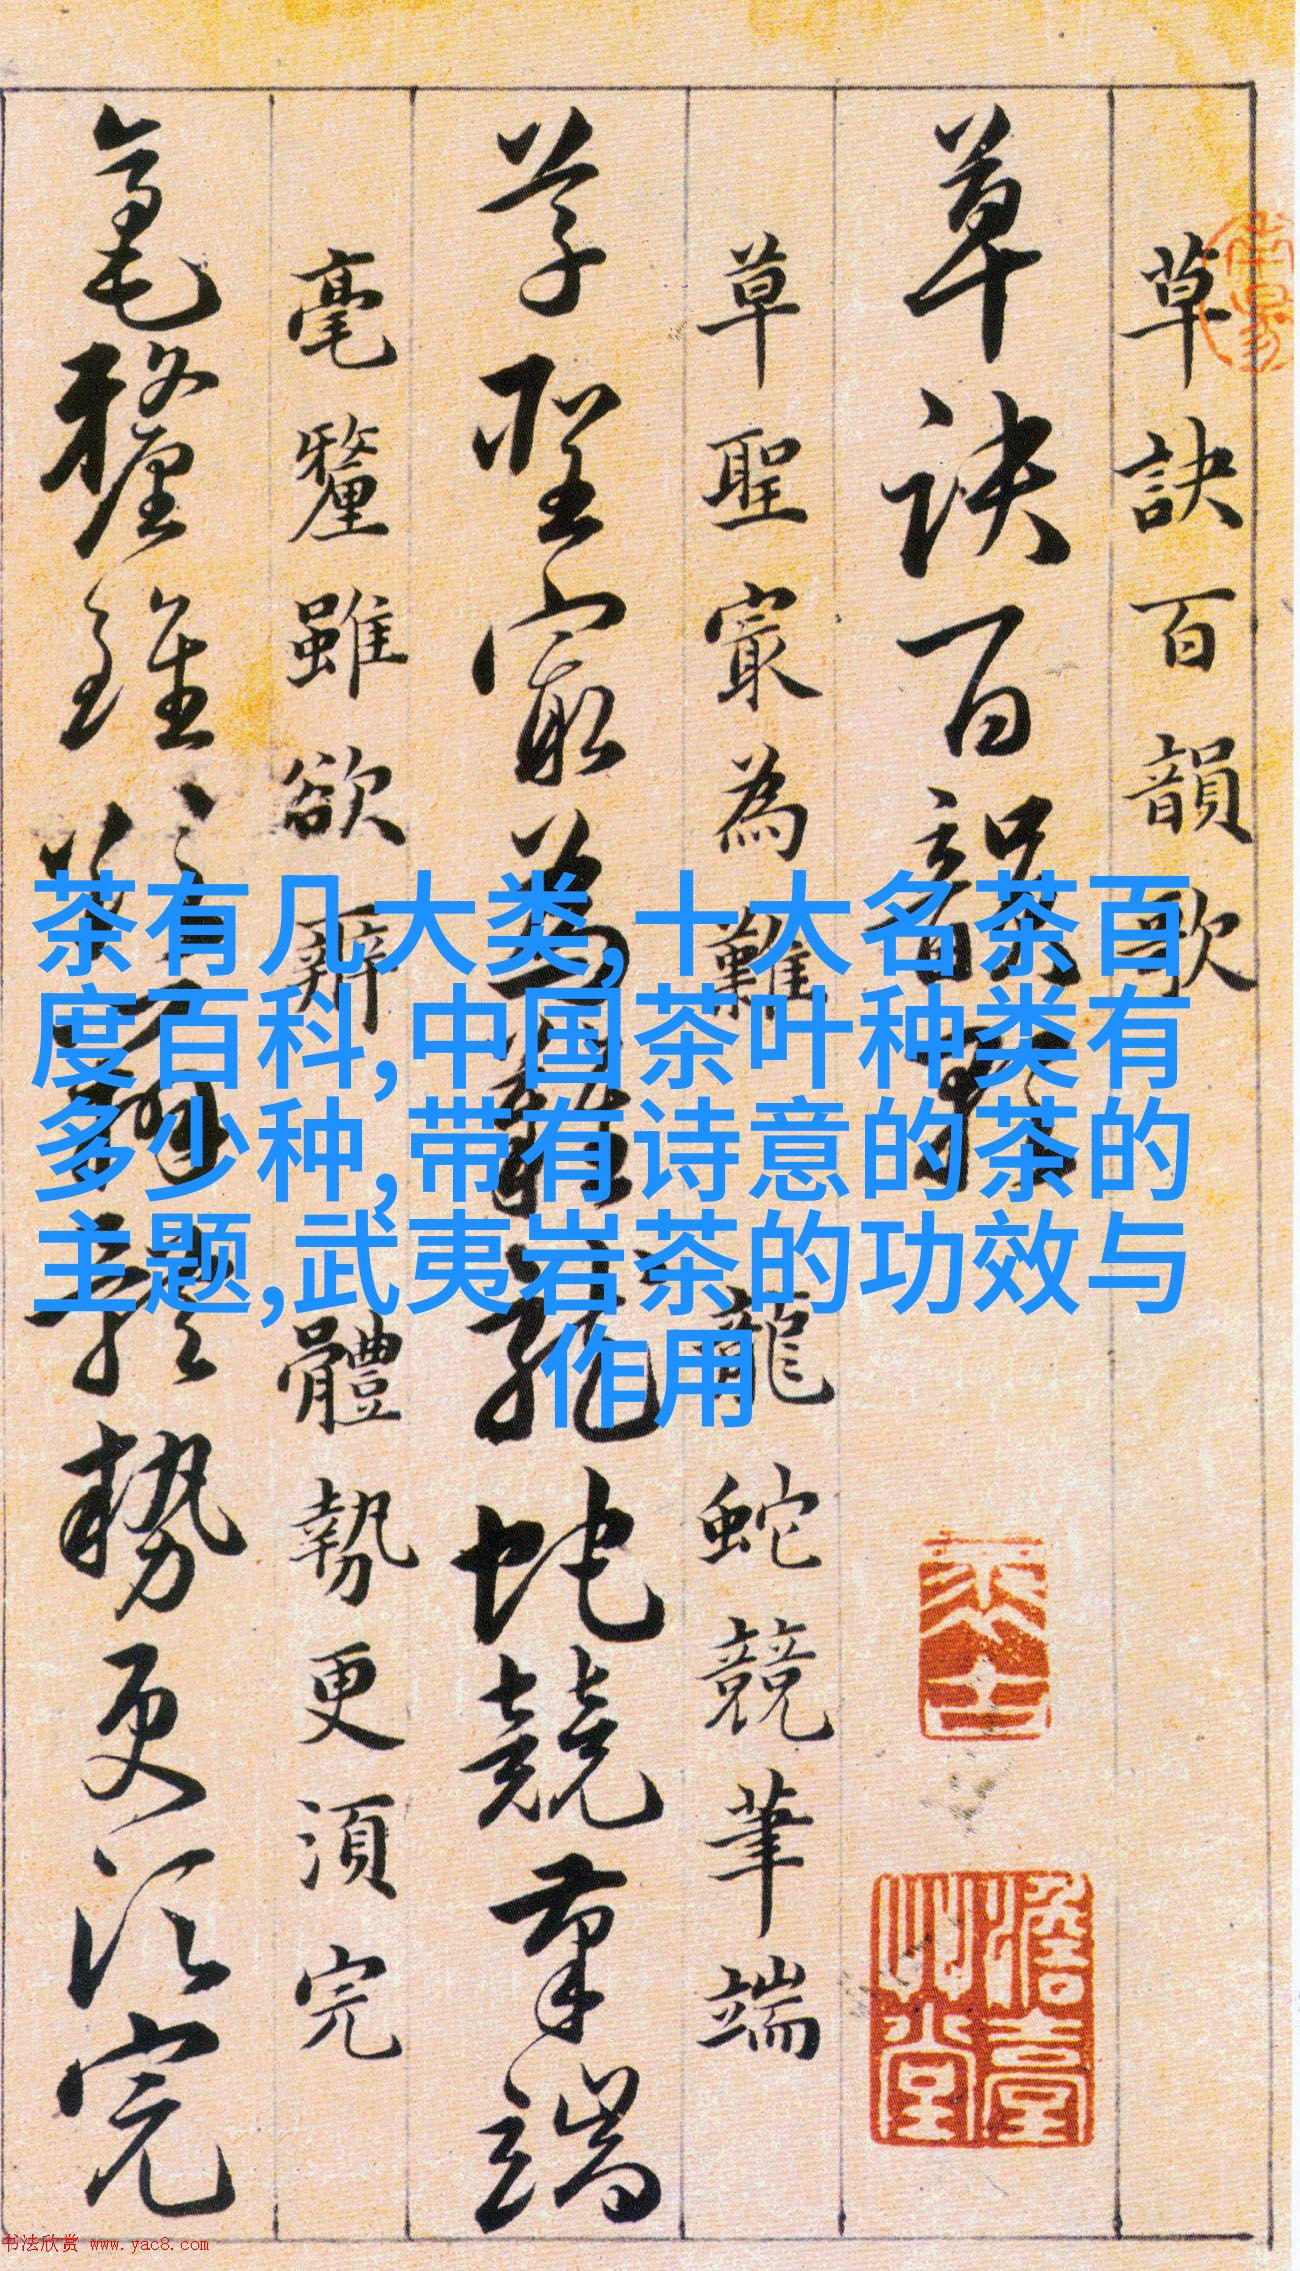 草訣百韻歌
草訣百韻歌
草聖㝡為難龍蛇競筆端
草聖㝡為難龍蛇競筆端
毫釐雖欲辨體勢更湏完
毫釐雖欲辨體勢更湏完
茶有几大类,十大名茶百
度百科,中国茶叶种类有
多少种,带有诗意的茶的
主题,武夷岩茶的功效与
作用
书法欣赏 www.yac8.com